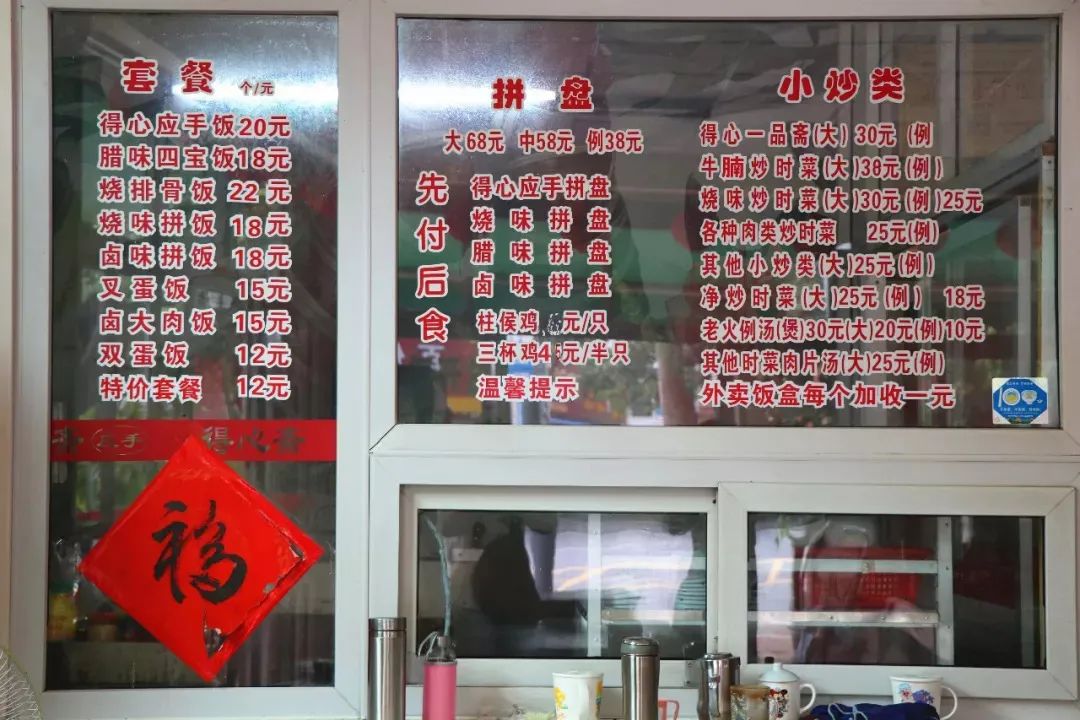 套餐 个/元
得心应手饭20元
腊味四宝饭18元
烧排骨饭 22元
烧味拼饭 18元
卤味拼饭 18元
叉蛋饭 15元
卤大肉饭 15元
双蛋饭 12元
特价套餐 12元
得心斋
福
拼盘
大68元 中58元 例38元
先付后食
得心应手拼盘
烧味拼盘
腊味拼盘
卤味拼盘
柱侯鸡 元/只
三杯鸡45元/半只
温馨提示
小炒类
得心一品斋(大) 30元 (例
牛腩炒时菜(大)38元(例)
烧味炒时菜(大)30元(例)25元
各种肉类炒时菜 25元(例)
其他小炒类(大)25元(例)
净炒时菜(大)25元(例) 18元
老火例汤(煲)30元(大)20元(例)10元
其他时菜肉片汤(大)25元(例)
外卖饭盒每个加收一元
100